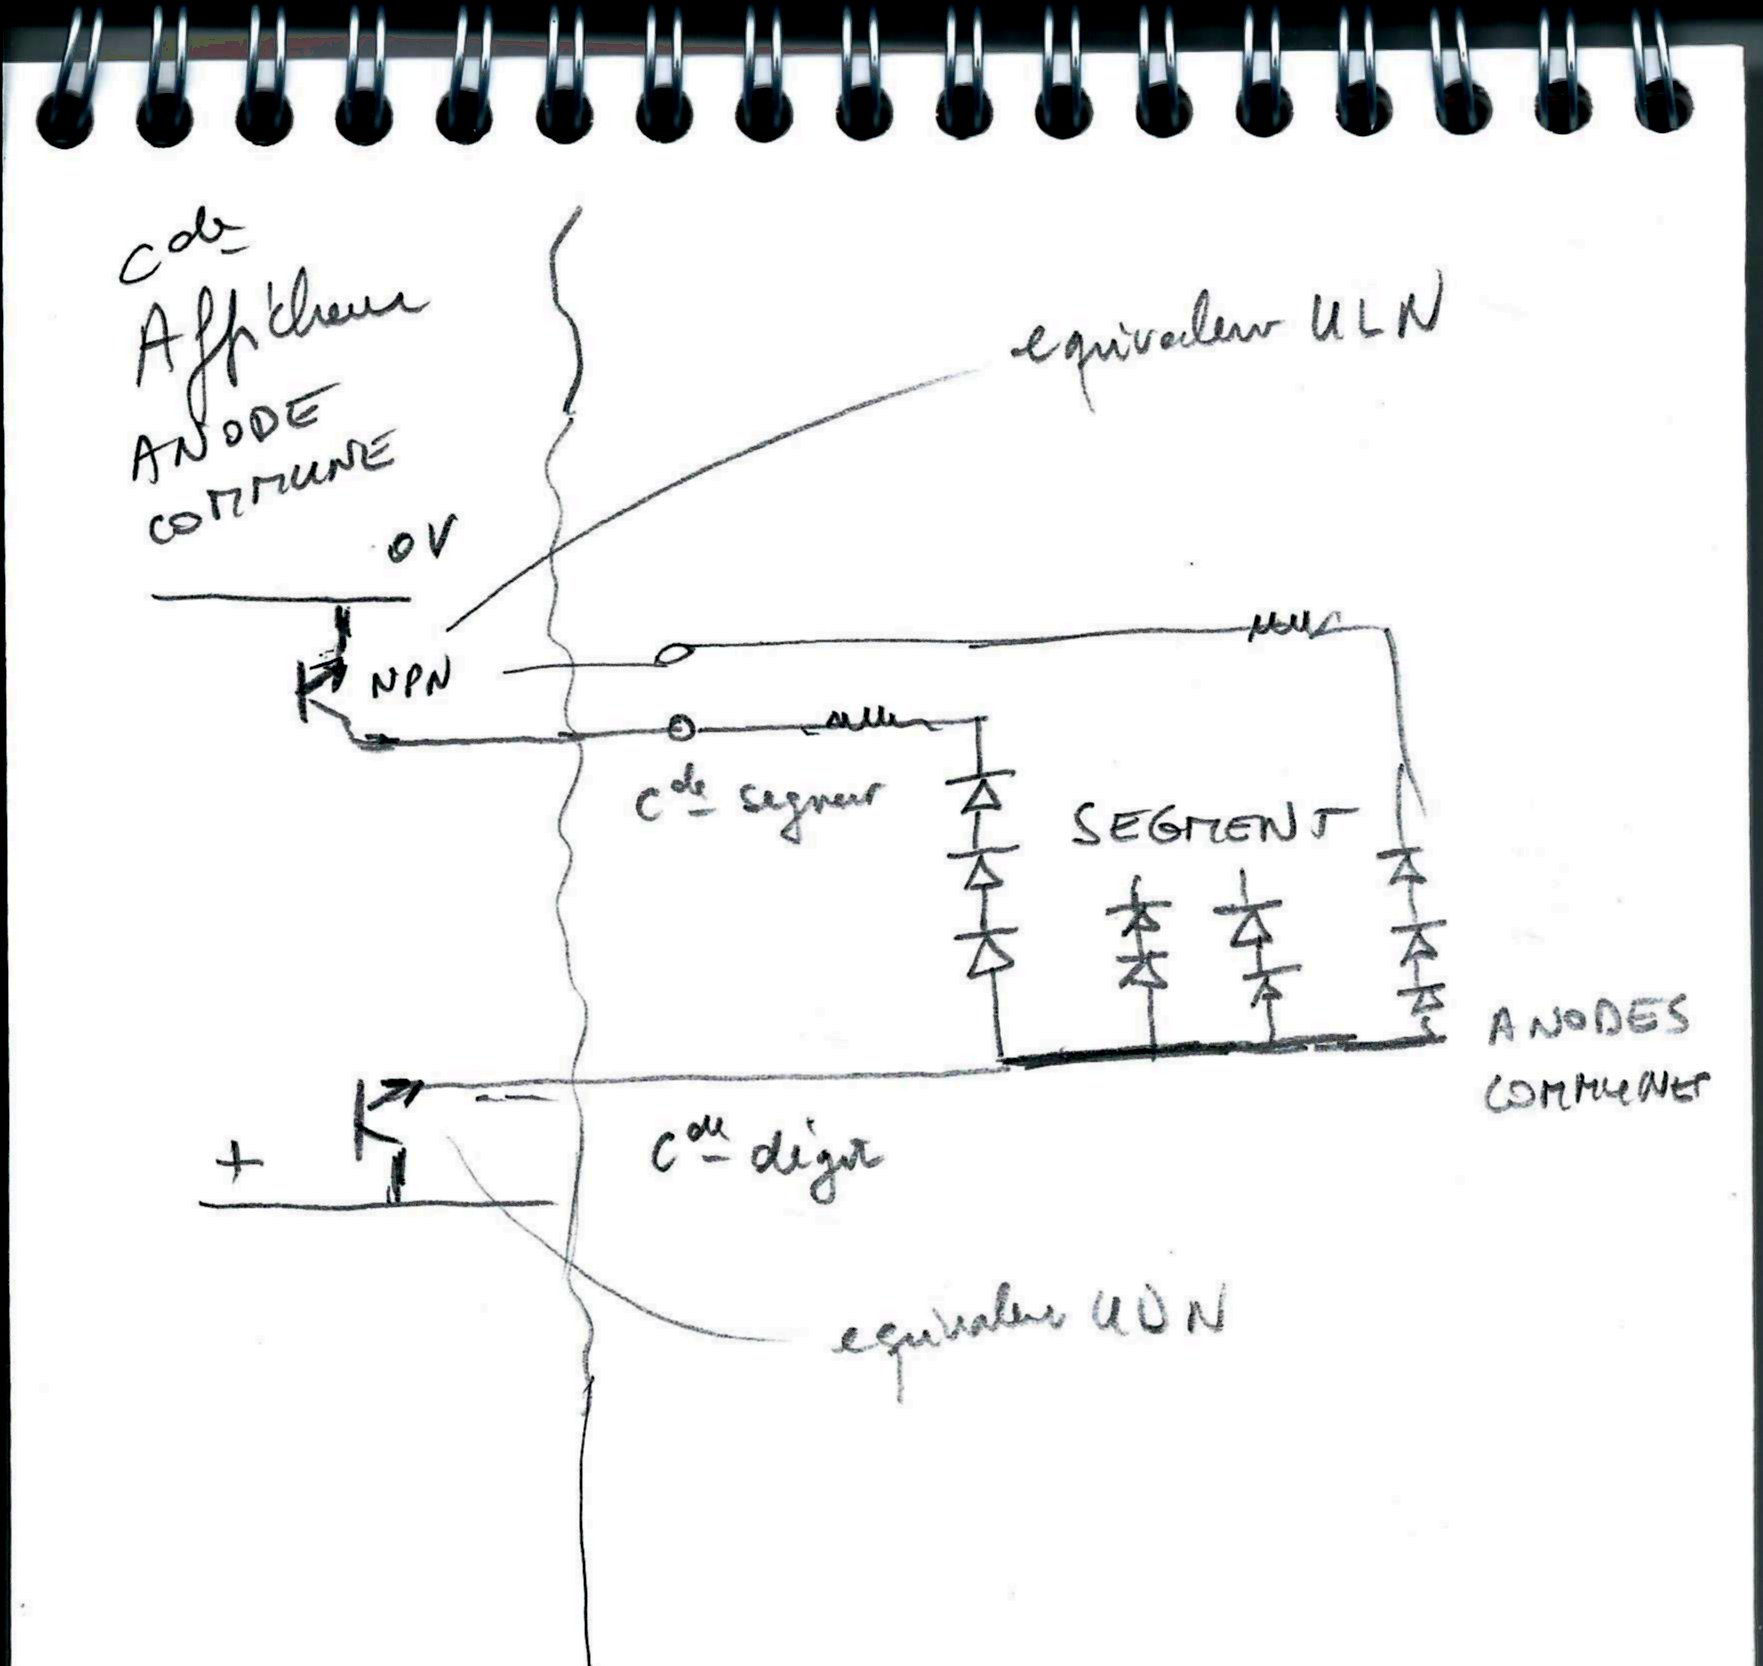 Cde
Afficheur
ANODE
COMMUNE
0V
equivalent ULN
NPN
Cde segment
SEGMENT
ANODES
COMMUNES
+
Cde digit
equivalent UDN